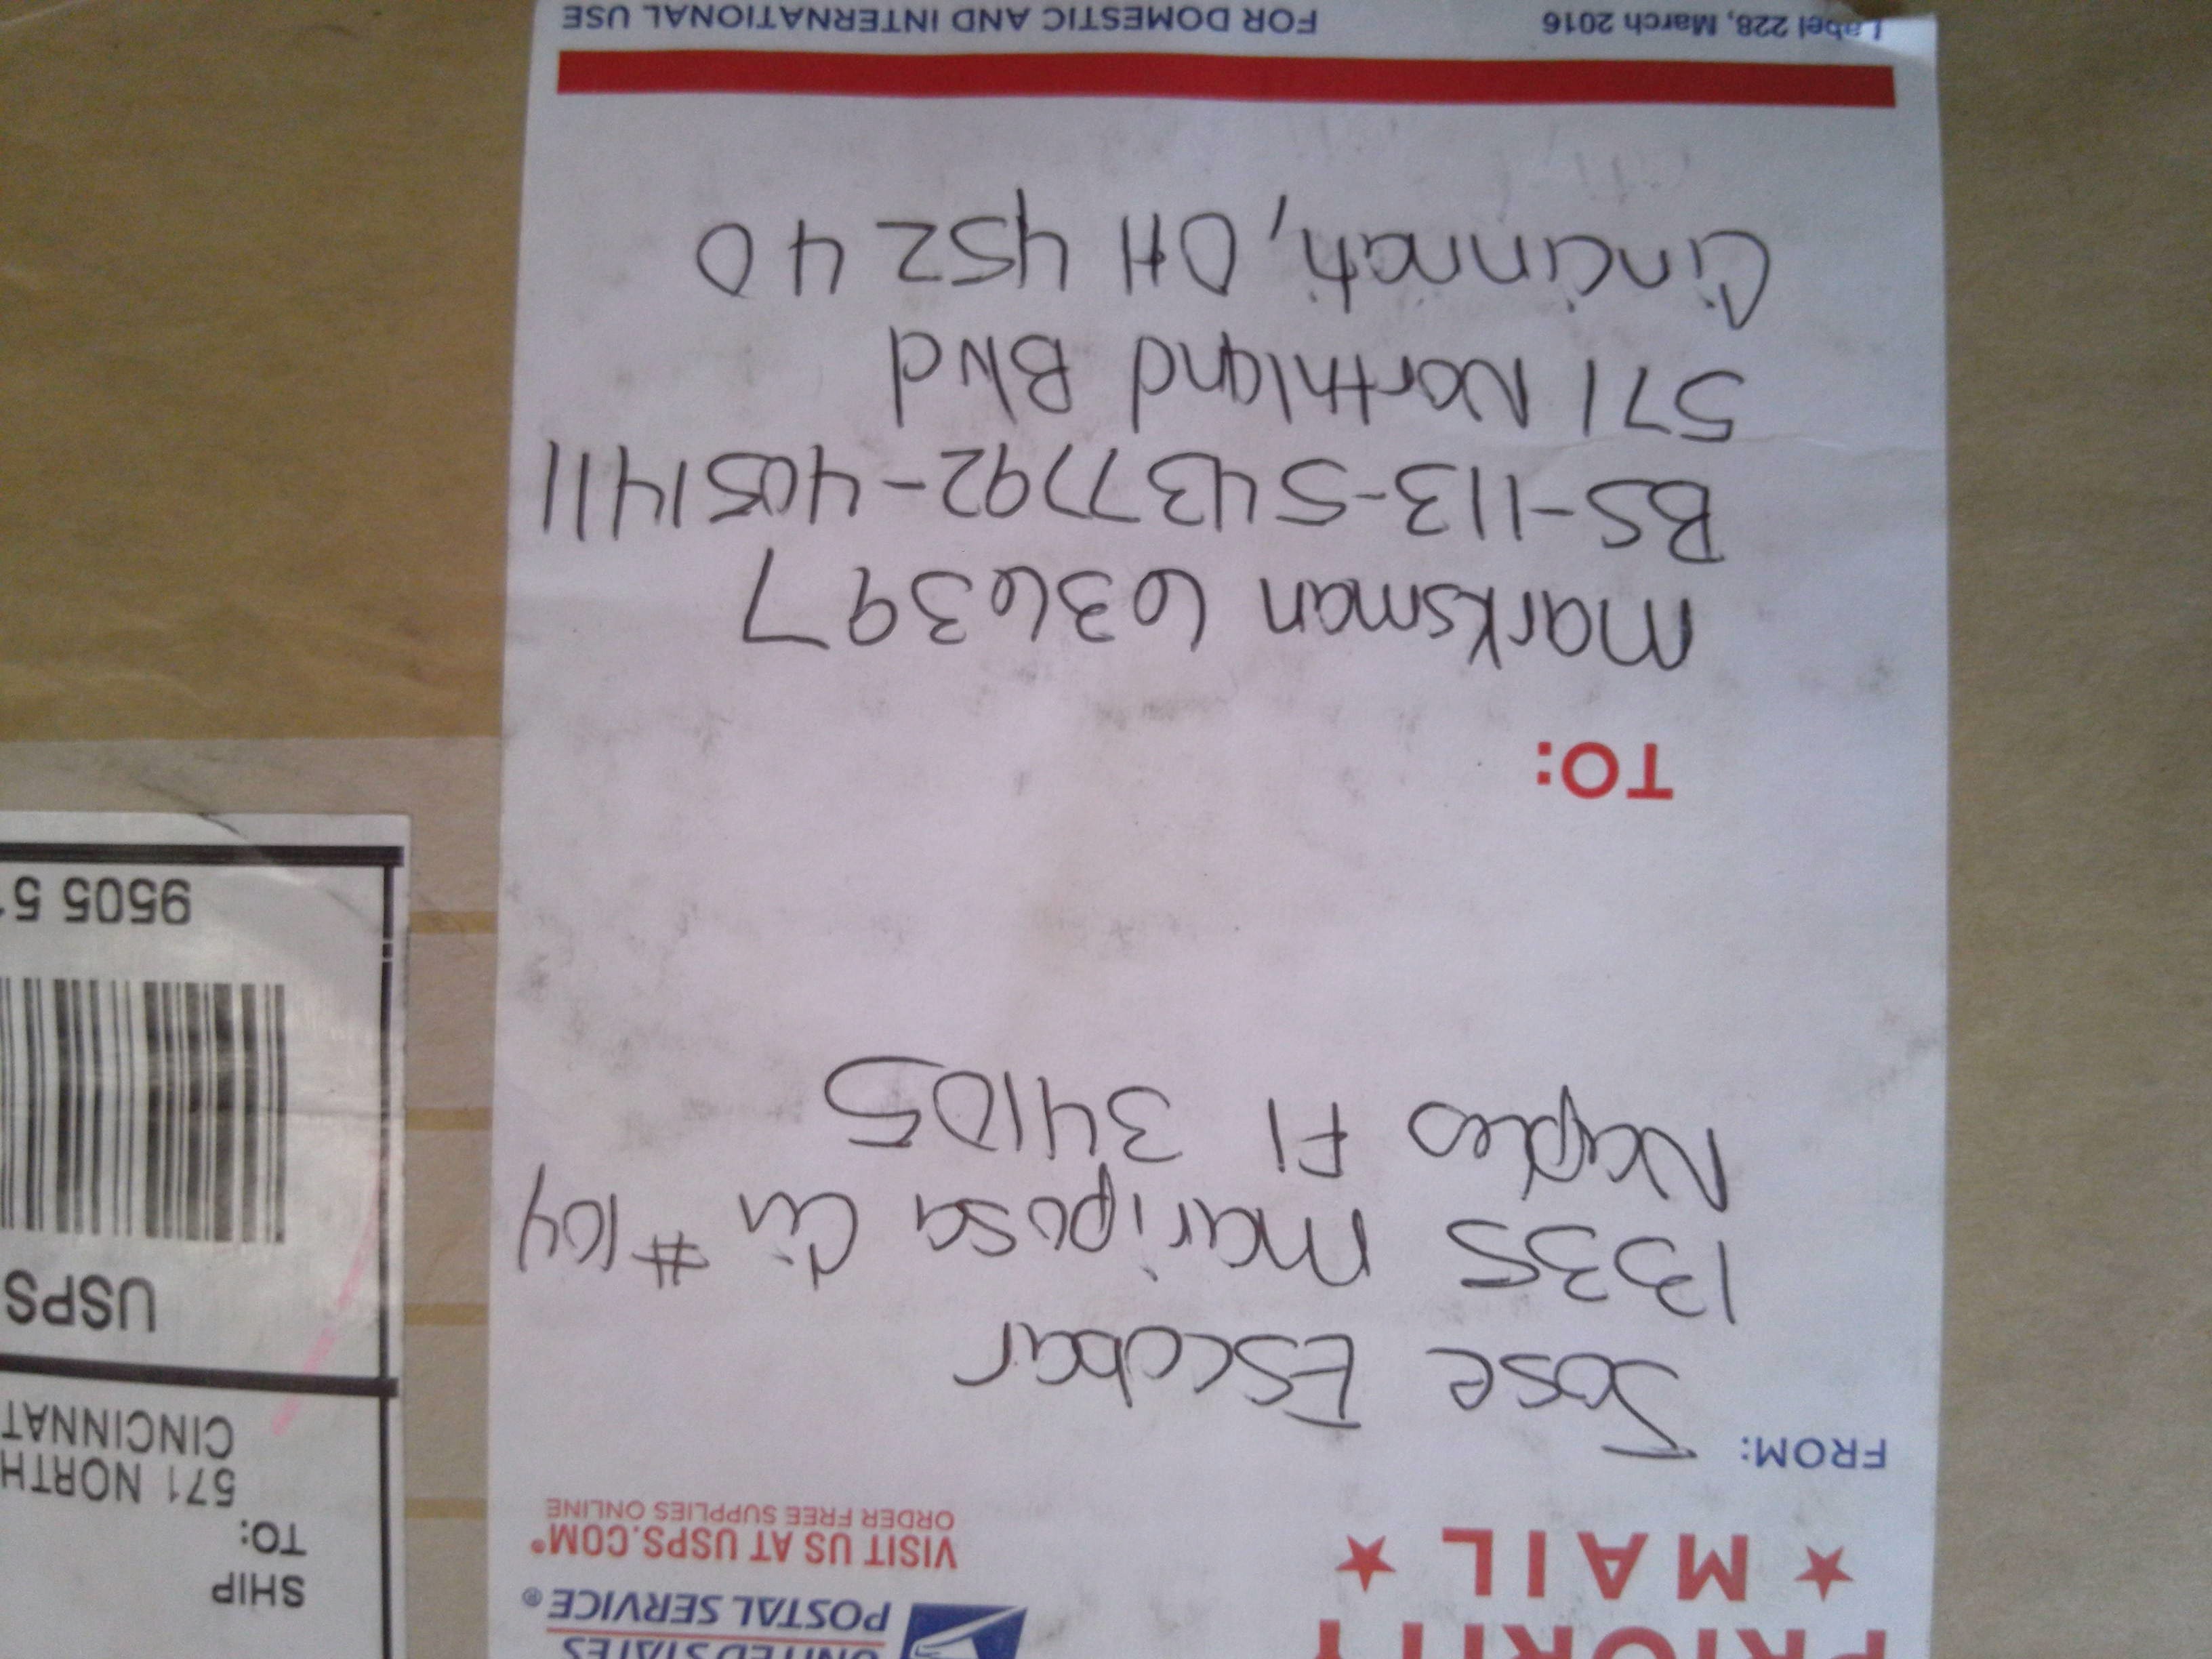 PRIORITY
★ MAIL ★
UNITED STATES
POSTAL SERVICE®
VISIT US AT USPS.COM®
ORDER FREE SUPPLIES ONLINE
FROM:
Jose Escobar
1335 Mariposa Cir #104
Naples Fl 34105
TO:
Marksman 636397
BS-113-5437792-4051411
571 Northland Blvd
Cincinnati, OH 45240
Label 228, March 2016
FOR DOMESTIC AND INTERNATIONAL USE
SHIP
TO:
571 NORTH
CINCINNAT
USPS
9505 5